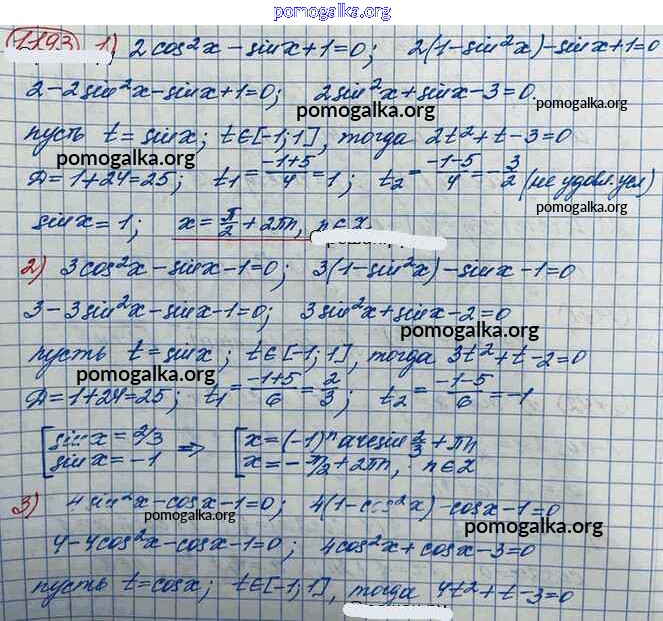 pomogalka.org
1193 1) 2cos²x - sinx + 1 = 0; 2(1 - sin²x) - sinx + 1 = 0
2 - 2sin²x - sinx + 1 = 0; 2sin²x + sinx - 3 = 0. pomogalka.org
пусть t = sinx; t∈[-1; 1], тогда 2t² + t - 3 = 0
pomogalka.org
Д = 1 + 24 = 25; t₁ = (-1+5)/4 = 1; t₂ = (-1-5)/4 = -3/2 (не удовл. усл)
pomogalka.org
sinx = 1; x = π/2 + 2πn, n∈Z
2) 3cos²x - sinx - 1 = 0; 3(1 - sin²x) - sinx - 1 = 0
3 - 3sin²x - sinx - 1 = 0; 3sin²x + sinx - 2 = 0
pomogalka.org
пусть t = sinx; t∈[-1; 1], тогда 3t² + t - 2 = 0
pomogalka.org
Д = 1 + 24 = 25; t₁ = (-1+5)/6 = 2/3; t₂ = (-1-5)/6 = -1
[sinx = 2/3 ⇒ [x = (-1)ⁿ arcsin 2/3 + πn
sinx = -1 x = -π/2 + 2πn, n∈Z
3) 4sin²x - cosx - 1 = 0; 4(1 - cos²x) - cosx - 1 = 0
pomogalka.org pomogalka.org
4 - 4cos²x - cosx - 1 = 0; 4cos²x + cosx - 3 = 0
пусть t = cosx; t∈[-1; 1], тогда 4t² + t - 3 = 0